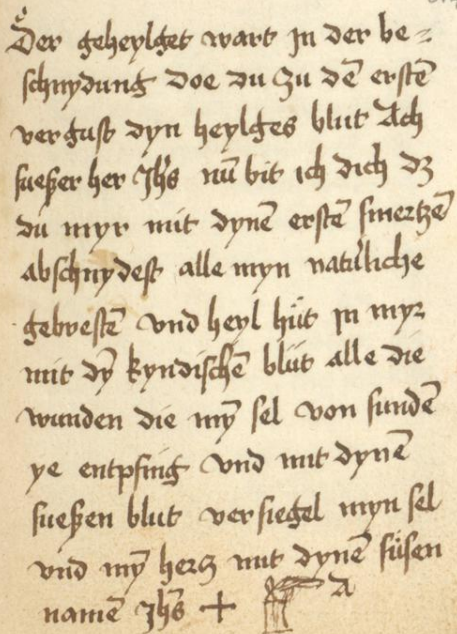 Der geheylget wart jn der be=
schnydung doe du zu dē erstē
vergust dyn heylges blut Ach
sueßer her Jhs nū bit ich dich dz
du myr mit dynē erstē smertzē
abschnydest alle myn natúliche
gebrestē vnd heyl hüt jn myr
mit dȳ kyndischē blüt alle die
wunden die mȳ sel von sundē
ye entpfing vnd mit dynē
sueßen blut versiegel myn sel
vnd mȳ hertz mit dynē süsen
namē Jhs + A